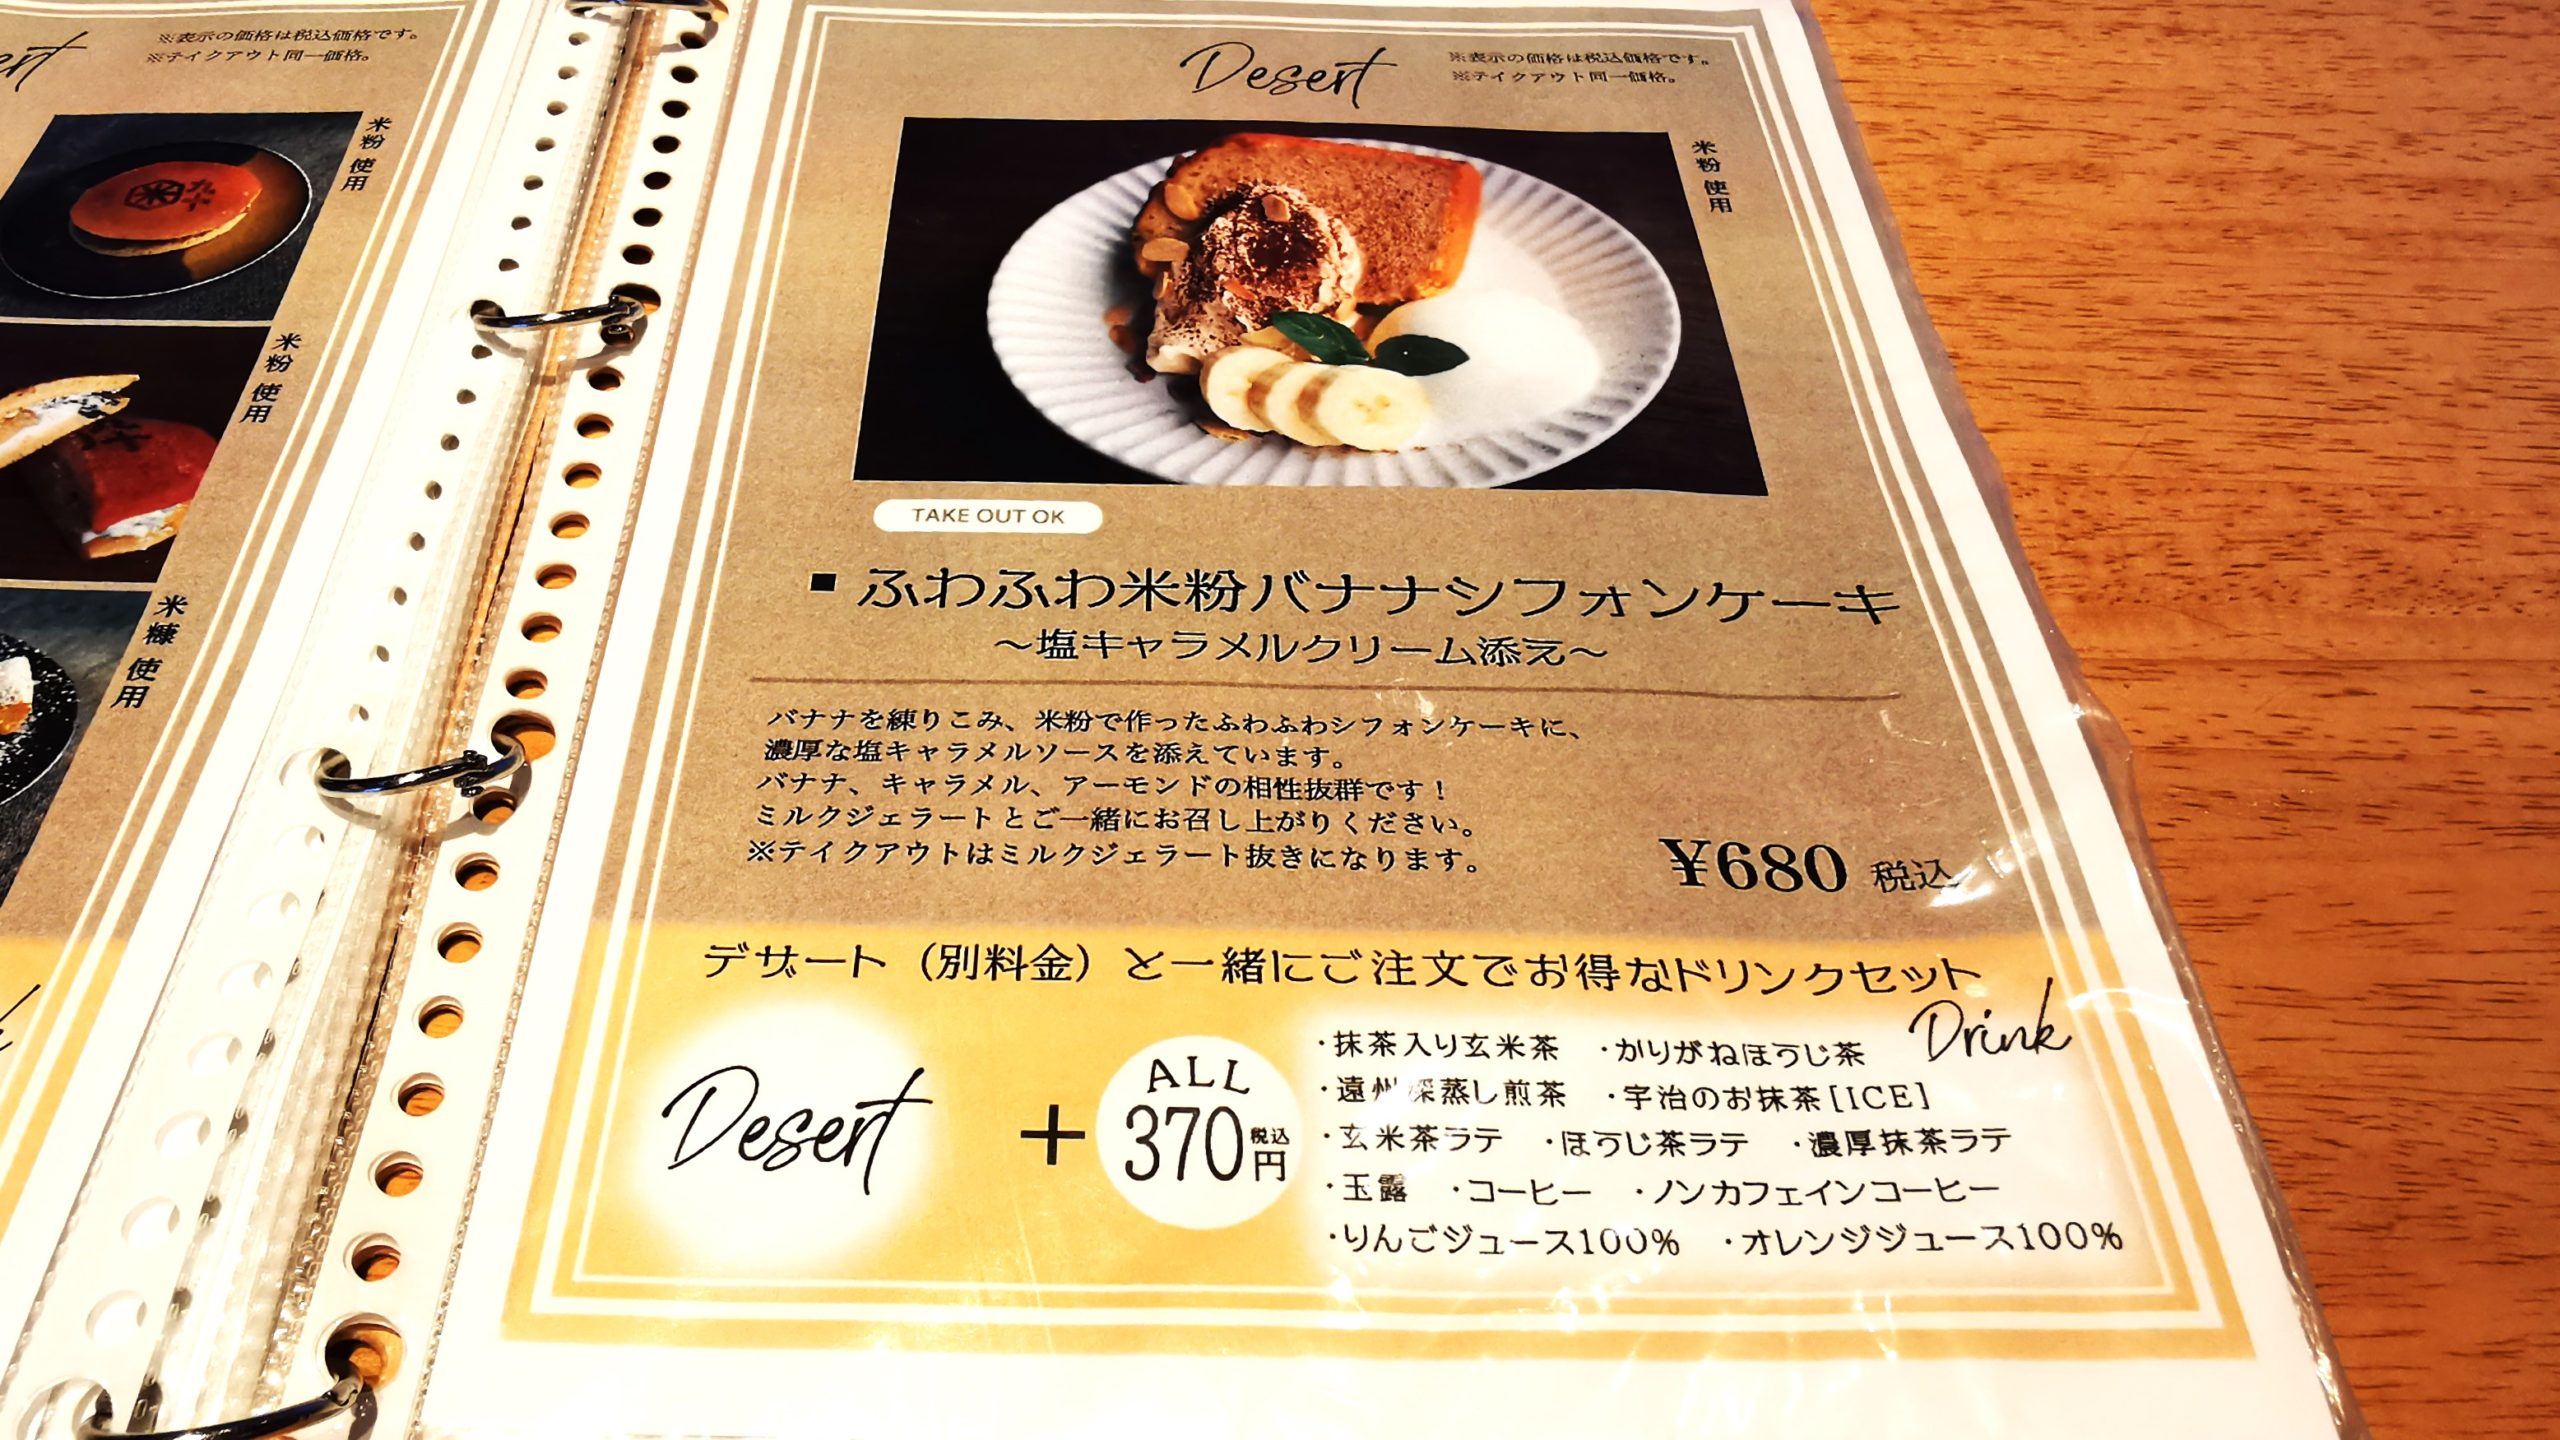 ※表示の価格は税込価格です。
※テイクアウト同一価格。
米粉使用
米粉使用
米糠使用
Desert
※表示の価格は税込価格です。
※テイクアウト同一価格。
米粉使用
TAKE OUT OK
▪ふわふわ米粉バナナシフォンケーキ
～塩キャラメルクリーム添え～
バナナを練りこみ、米粉で作ったふわふわシフォンケーキに、
濃厚な塩キャラメルソースを添えています。
バナナ、キャラメル、アーモンドの相性抜群です！
ミルクジェラートとご一緒にお召し上がりください。
※テイクアウトはミルクジェラート抜きになります。
¥680 税込
デザート（別料金）と一緒にご注文でお得なドリンクセット
Desert
+
ALL
370円 税込
Drink
・抹茶入り玄米茶 ・かりがねほうじ茶
・遠州深蒸し煎茶 ・宇治のお抹茶[ICE]
・玄米茶ラテ ・ほうじ茶ラテ ・濃厚抹茶ラテ
・玉露 ・コーヒー ・ノンカフェインコーヒー
・りんごジュース100% ・オレンジジュース100%